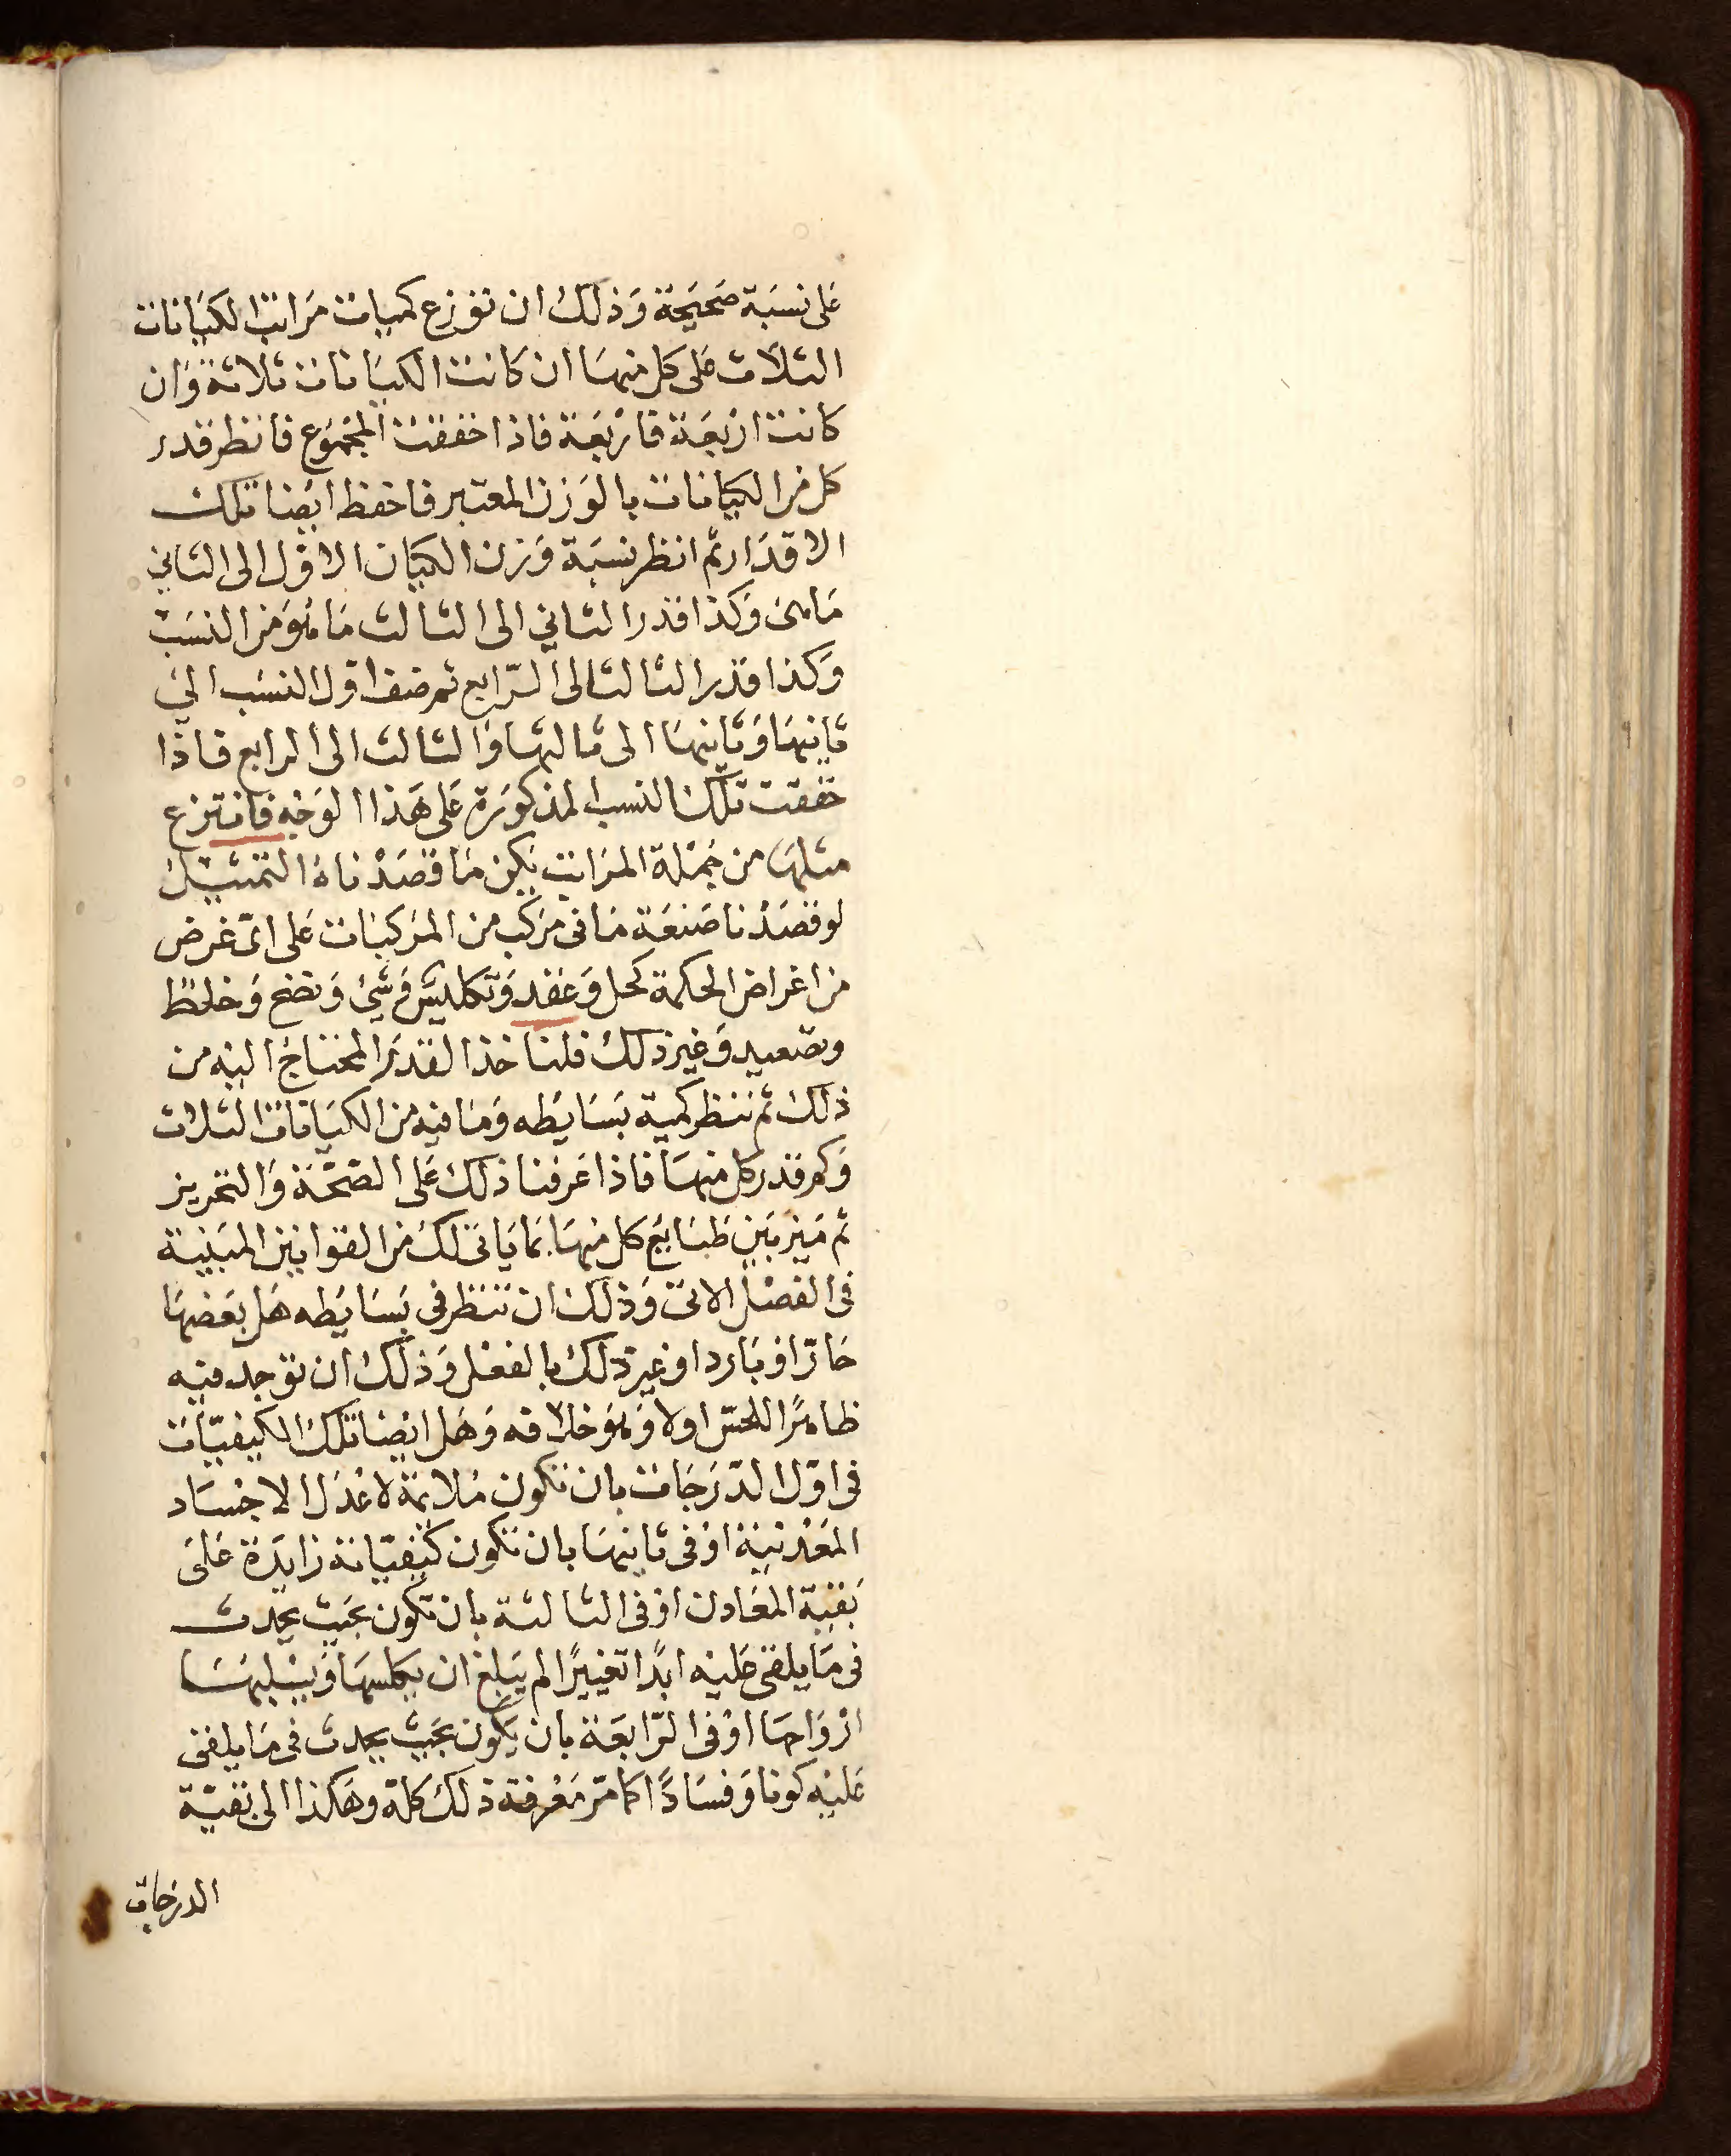 على نسبة صحيحة وذلك ان توزع كميات مراتب الكيانات
الثلاث على كل منها ان كانت الكيانات ثلاثة وان
كانت اربعة فاربعة فاذا حققت المجموع فانظر قدر
كل من الكيانات بالوزن المعتبر فاحفظ ايضا تلك
الاقدار ثم انظر نسبة وزن الكيان الاول الى الثاني
ما هى وكذا قدر الثاني الى الثالث ما هو من النسب
وكذا قدر الثالث الى الرابع ثم ضف اول النسب الى
ثانيها وثانيها الى ثالثها والثالث الى الرابع فاذا
حققت تلك النسب المذكورة على هذا الوجه فانتزع
مثلها من جملة المراتب يكن ما قصدناه التمثيل
لو قصدنا صنعة ما فى مركب من المركبات على اى غرض
من اغراض الحكمة كحل وعقد وتكليس وشى ونضج وخلط
وتصعيد وغير ذلك فلنا خذ القدر المحتاج اليه من
ذلك ثم ننظر كمية بسايطه وما فيه من الكيانات الثلاث
وكم قدر كل منها فاذا عرفنا ذلك على الصحة والتحرير
ثم ميز بين طبايع كل منها بما ياتى لك من القوانين المبنية
فى الفصل الاتى وذلك ان تنظر فى بسايطه هل بعضها
حارا او باردا او غير ذلك بالفعل وذلك ان توجد فيه
ظاهرا للحس اولا وهو خلافه وهل ايضا تلك الكيفيات
فى اول الدرجات بان تكون ملائمة لاعدل الاجساد
المعدنية او فى ثانيها بان تكون كيفياته زايدة على
بقية المعادن او فى الثالثة بان تكون بحيث يحدث
فى ما يلقى عليه ابدا تغييرا لم يبلغ ان يكلسها ويسلبها
ارواحها او فى الرابعة بان يكون بحيث يحدث فى ما يلقى
عليه كونا وفسادا كما مر معرفة ذلك كله وهكذا الى بقية
الدرجات